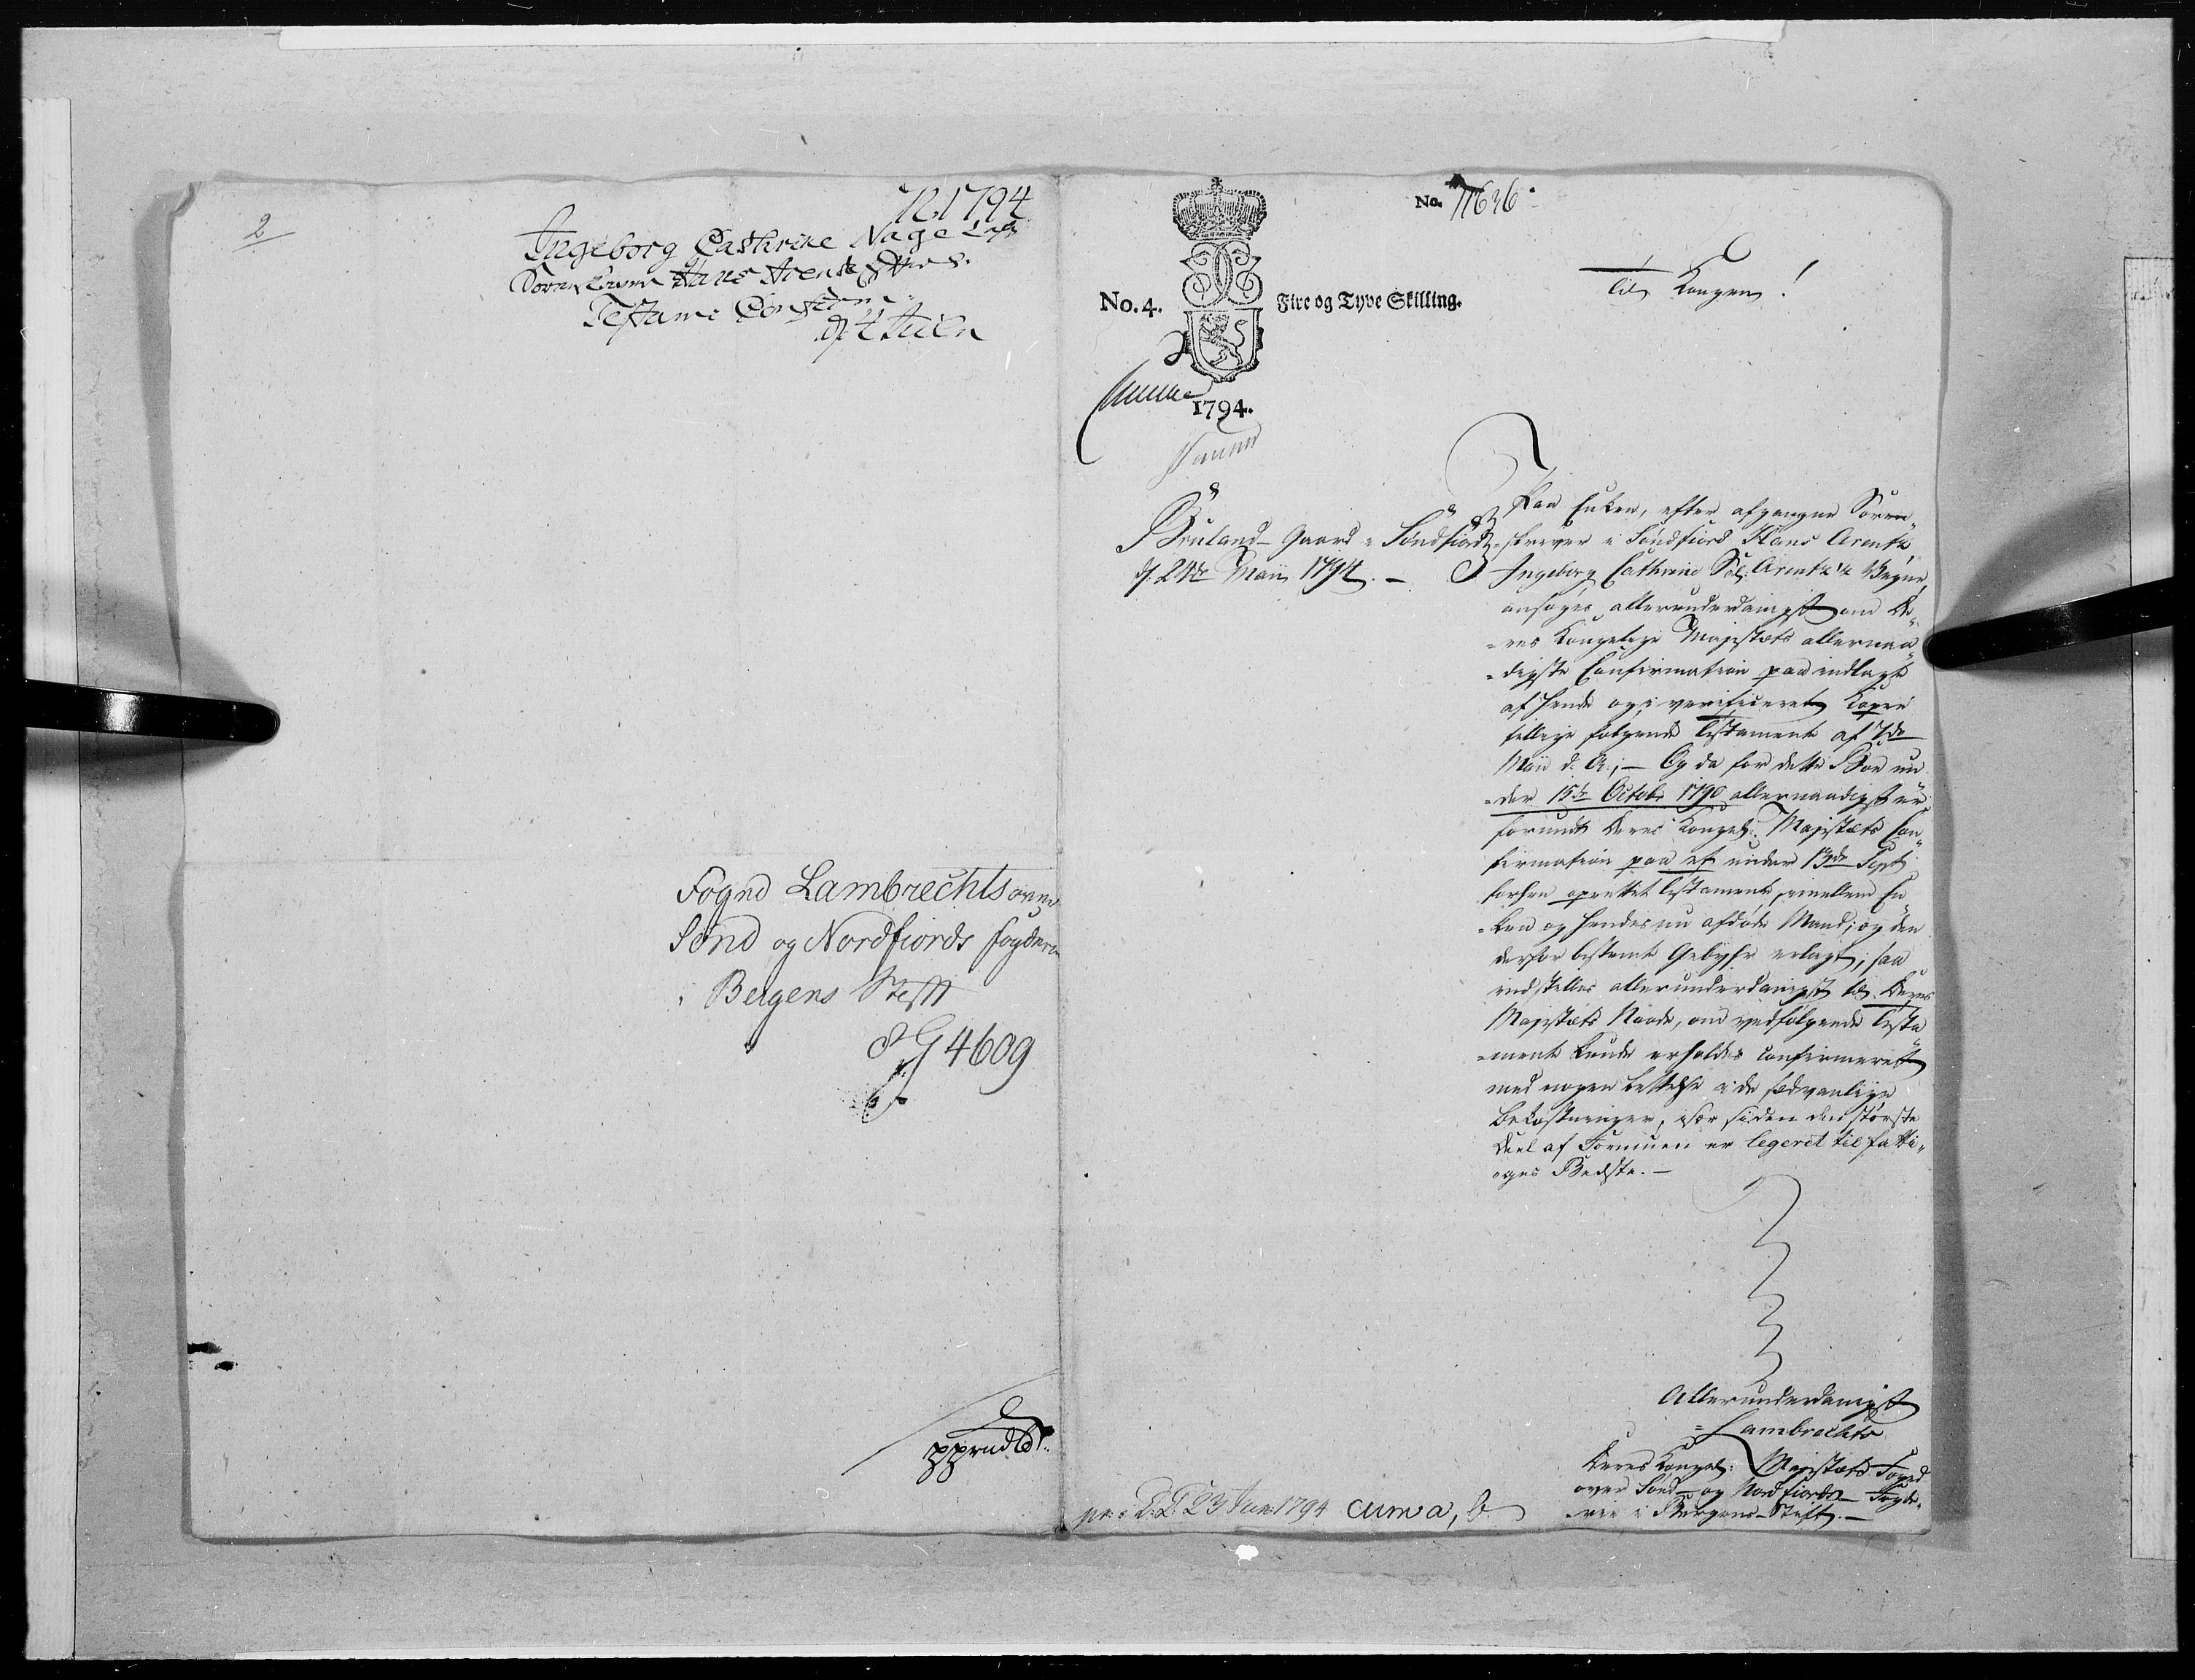 2
1794
Ingeborg Cathrine Nagel
Sorenskriver Hans Arentz
Testam: Conf
4 Julii
Foged Lambrechts over
Sond og Nordfiords fogderie
i Bergens Stift
G 4609
No. 11636
Til Kongen!
No. 4. Fire og Tyve Skilling.
1794.
Bruland Gaard i Søndfiord
d. 24de Maii 1794.
Paa Enken, efter afgangne Soren-
skriver i Søndfiord Hans Arentz,
Ingeborg Cathrine Sal: Arentz's Vegne,
ansøges allerunderdanigst om De-
res Kongelige Majestæts allernaa-
digste Confirmation paa indlagte
af hende og i verificeret Copie
tillige følgende Testamente af 7de
Maii d: A:, — Og da for dette Boe un-
der 15de Octobr 1790 allernaadigst er
forundt Deres Kongel: Majestæts Con-
firmation paa et under 13de Sept:
forhen oprettet Testamente, imellem En-
ken og hendes nu afdøde Mand; og den
derfor bestemte Gebyhr erlagt; saa
indstilles allerunderdanigst til Deres
Majestæts Naade, om vedfølgende Testa-
mente kunde erholdes confirmeret
med nogen Lettelse i de sædvanlige
Bekostninger, især siden den største
Deel af Formuen er legeret til fatti-
ges Bedste. —
Allerunderdanigst
Lambrechts
Deres Kongel: Majestæts Foged
over Sønd- og Nordfiords Fogde-
rie i Bergens Stift. —
pr: D: 23 Jun 1794 cum a, b.